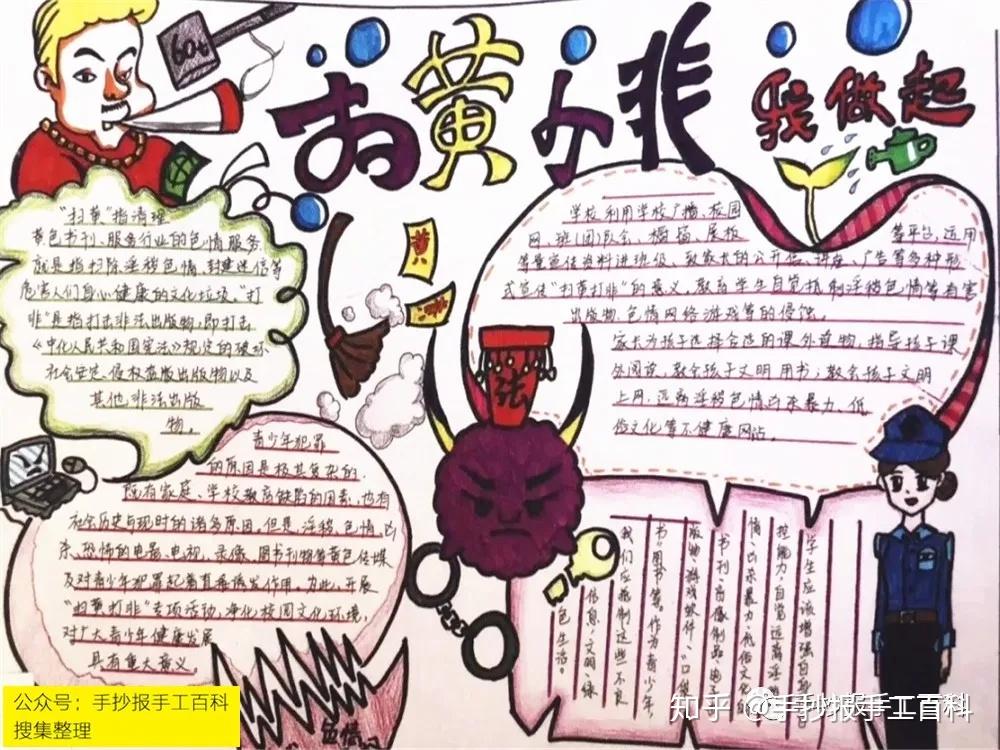 扫黄打非 我做起
60t
"扫黄"指清理
黄色书刊、服务行业的色情服务
就是指扫除淫秽色情、封建迷信等
危害人们身心健康的文化垃圾。"打
非"是指打击非法出版物,即打击
《中华人民共和国宪法》规定的破坏
社会安定、侵权盗版出版物以及
其他非法出版
物。
黄
法
学校利用学校广播、校园
网、班(团)队会、橱窗、展板
等平台,运用
式宣传"扫黄打非"的意义,教育学生自觉抵制淫秽色情等有害
出版物、色情网络游戏等的侵蚀。
家长为孩子选择合适的课外读物,指导孩子课
外阅读,教会孩子文明用书;教会孩子文明
上网,远离淫秽色情凶杀暴力、低
俗文化等不健康网站。
青少年犯罪
的原因是极其复杂的,
既有家庭、学校教育缺陷的因素,也有
社会历史与现时的诸多原因,但是淫秽色情、凶
杀、恐怖的电影、电视、录像、图书刊物等黄色传媒
及对青少年犯罪起着直接诱发作用。为此,开展
"扫黄打非"专项活动,净化校园文化环境,
对广大青少年健康发展
具有重大意义。
学生应该增强自
控能力,自觉远离淫秽
情、凶杀暴力、低俗文化的
书刊、音像制品、电子
版物、游戏软件、"口袋
书"用书等。作为青少年,
我们应抵制这些不良
信息,文明、绿
色生活。
色情
公众号:手抄报手工百科
搜集整理
知乎 @手抄报手工百科